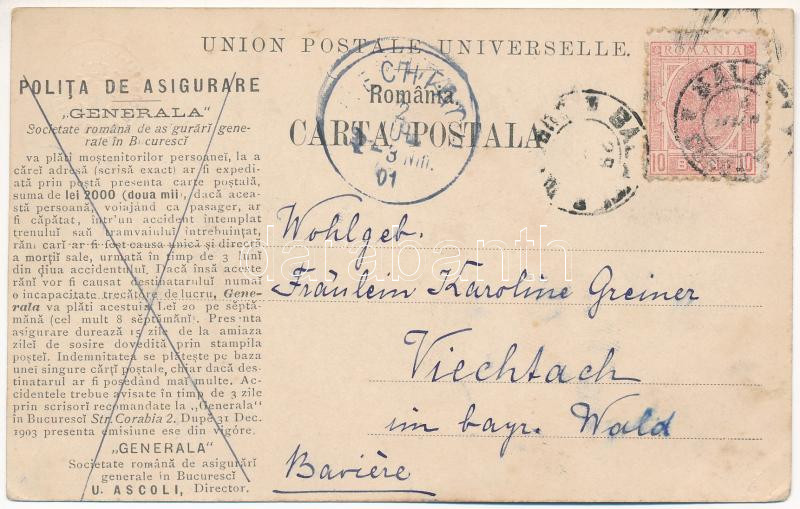 UNION POSTALE UNIVERSELLE.
România
CARTA POSTALA
POLIȚA DE ASIGURARE
„GENERALA“
Societate română de as gurări gene-
rale în Bucuresci
va plăti moștenitorilor persoanei, la a
cărei adresă (scrisă exact) ar fi expedi-
ată prin poștă presenta carte poștală,
suma de lei 2000 (doua mii), dacă acea-
stă persoană, voiajând ca pasager, ar
fi căpătat, intr'un accident intemplat
trenului saŭ tramvaiului intrebuințat,
răni cari ar fi fost causa unică și directă
a morții sale, urmată în timp de 3 luni
din diua accidentului. Dacă însă aceste
răni vor fi causat destinatarului numai
o incapacitate trecătore de lucru, Gene-
rala va plăti acestuia Lei 20 pe săptă-
mână (cel mult 8 săptămâni). Presenta
asigurare durează 15 zile de la amiaza
zilei de sosire dovedită prin stampila
poștei. Indemnitatea se plătește pe baza
unei singure cărți poștale, chiar dacă des-
tinatarul ar fi posedând mai multe. Ac-
cidentele trebue avisate în timp de 3 zile
prin scrisori recomandate la „Generala“
în Bucuresci Str. Corabia 2. După 31 Dec.
1903 presenta emisiune ese din vigóre.
„GENERALA“
Societate română de asigurări
generale în Bucuresci
U. ASCOLI, Director.
3 Nm.
01
ROMANIA
10 BANI 10
Wohlgeb.
Fräulein Karoline Greiner
Viechtach
im bayr. Wald
Bavière
darabanth